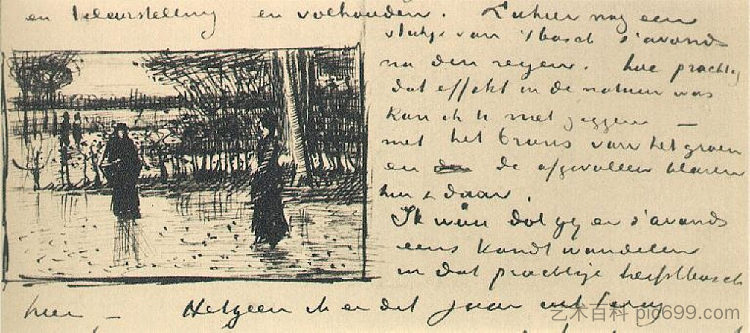 en teleurstelling en volhouden. Ziehier nog een
stukje van 't bosch 's avonds
na den regen. hoe prachtig
dat effekt in de natuur was
kan ik U niet zeggen —
met het brons van het groen
en de afgevallen blaren
hier & daar.
Ik wou dat gij er 's avonds
eens kondt wandelen
in dat prachtige herfstbosch
hier — Hetgeen ik er dit jaar uit
艺术百科 pic699.com